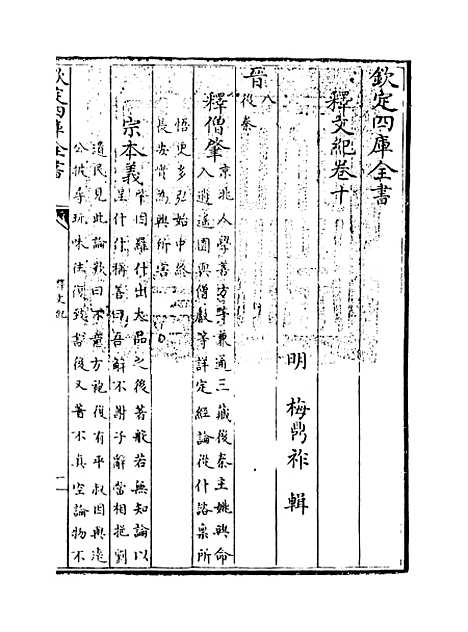 欽定四庫全書
釋文紀卷十
明 梅鼎祚 輯
晉八
後秦
釋僧肇京兆人學善方等兼通三藏後秦主姚興命
入逍遥園與僧叡等詳定經論從什諮禀所
悟更多弘始中終
長安嘗為興所
宗本義肇因羅什出大品之後著般若無知論以
呈什什稱善曰吾解不謝子辭當相挹劉
遺民見此論歎曰不意方袍復有平叔因與遠
公披尋玩味往復致書後又著不真空論物不
欽定四庫全書
釋文紀
一